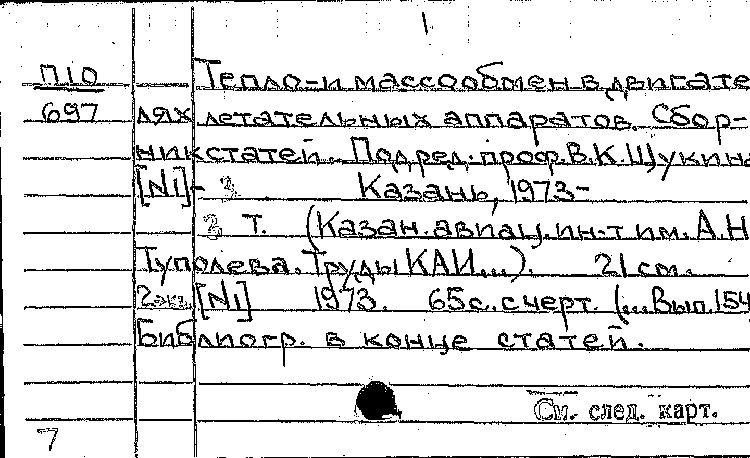 П10 Тепло-и массообмен в двигате
697 лях летательных аппаратов. Сбор-
ник статей. Под ред. проф. В.К. Щукина
[N1]- 3 Казань, 1973-
3 т. (Казан. авиац. ин-т им. А.Н
Туполева. Труды КАИ...). 21 см.
2 экз. [N1] 1973. 65 с. с черт. (...Вып. 154
Библиогр. в конце статей.
См. след. карт.
7